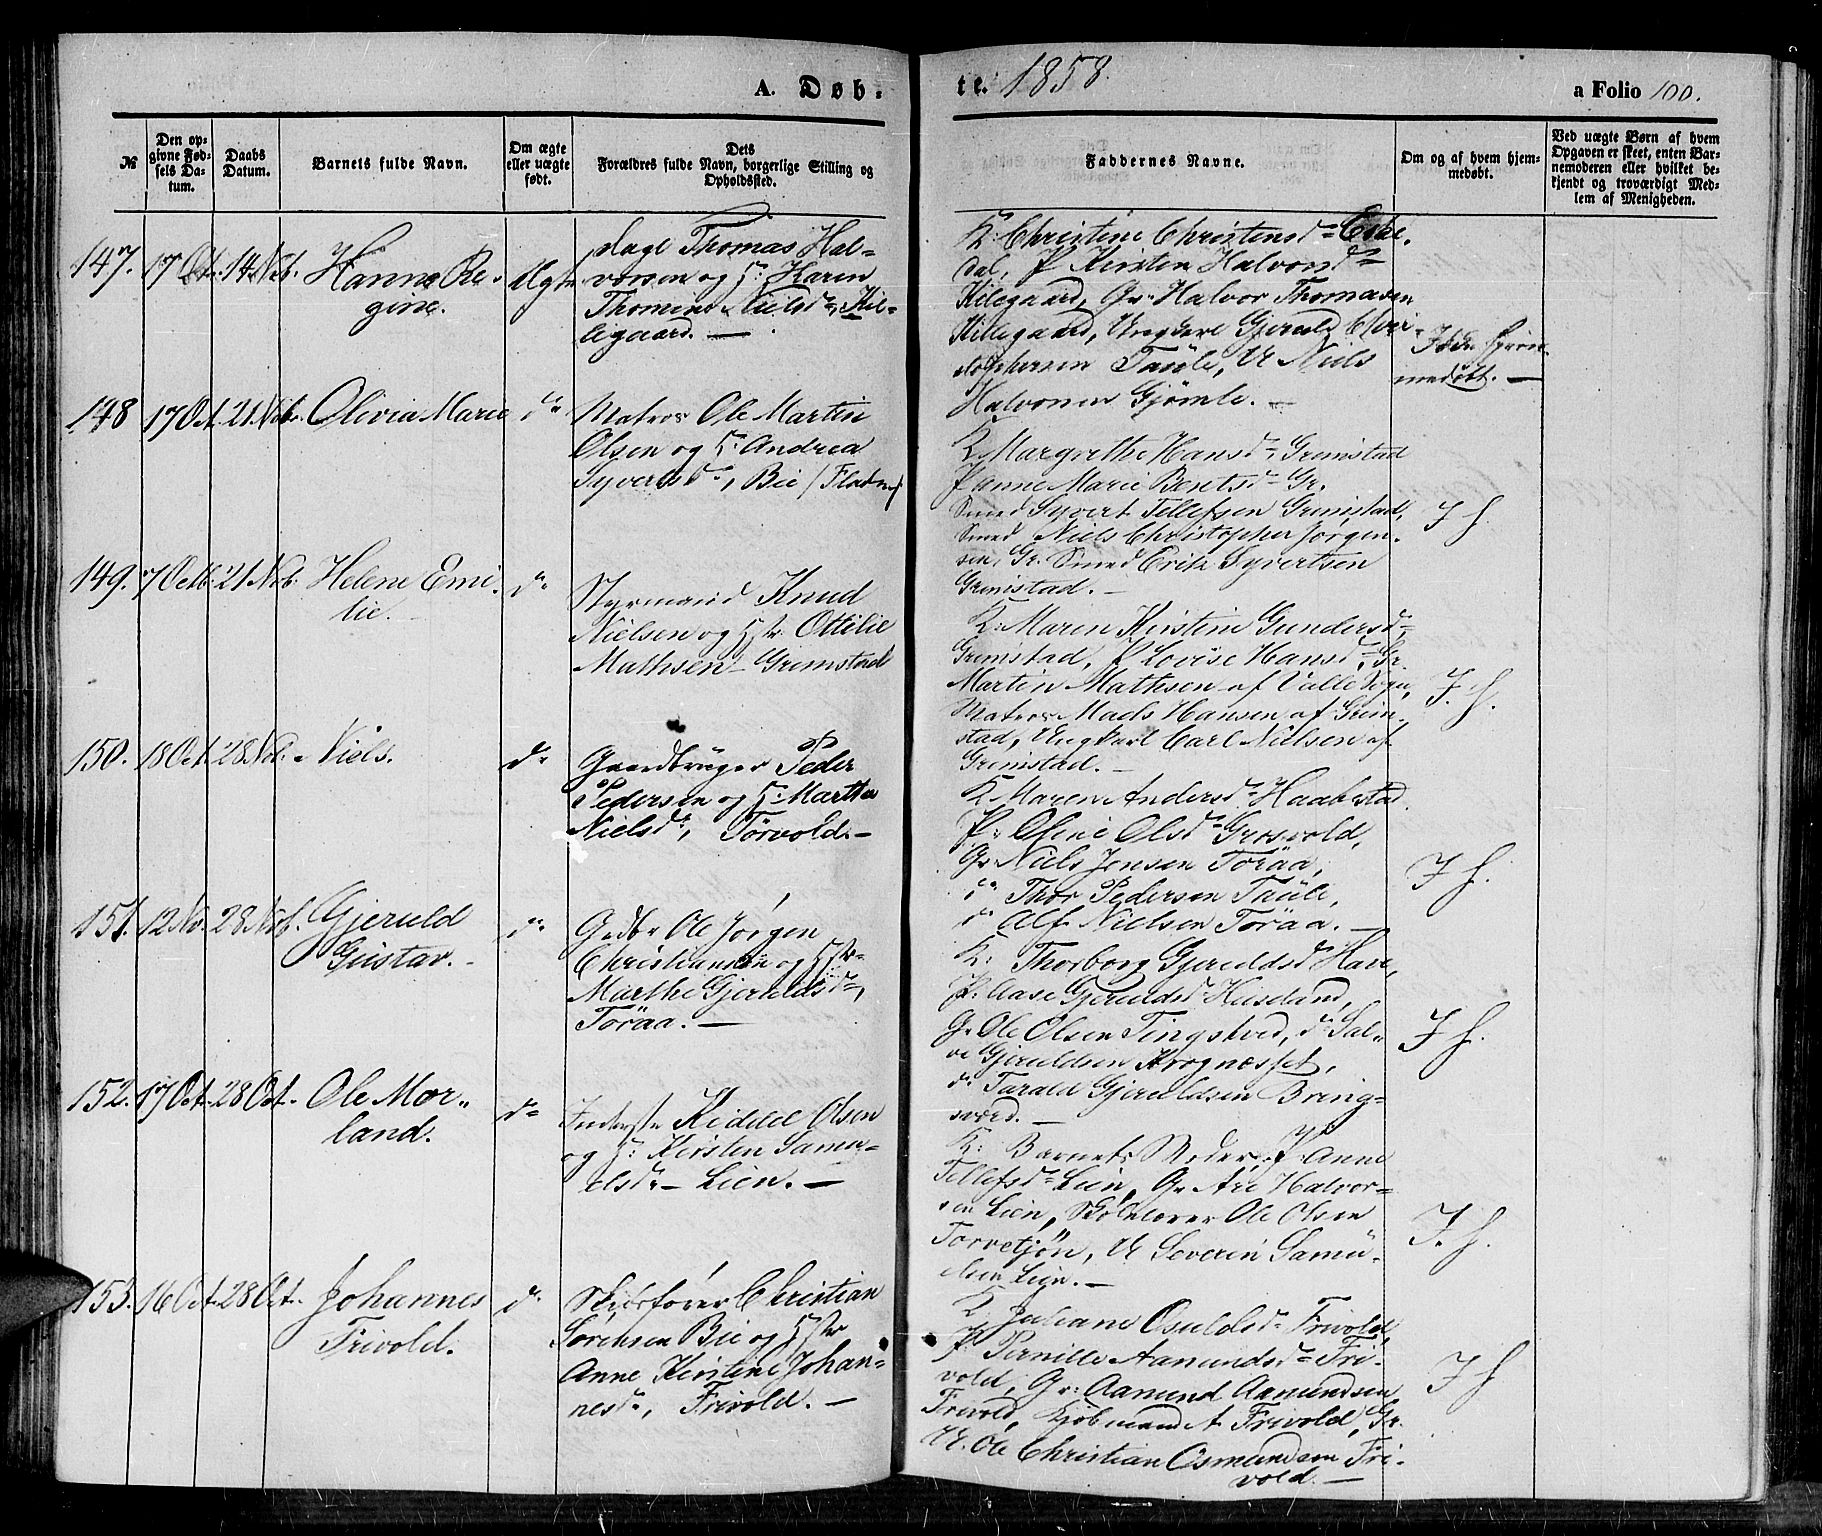 A. Døb-
te. 1858.
a Folio 100.
№
Den op-
givne Fød-
sels Da-
tum.
Daabs
Datum.
Barnets fulde Navn.
Om ægte
eller uægte
født.
Dets
Forældres fulde Navn, borgerlige Stilling og
Opholdssted.
Faddernes Navne.
Om og af hvem hjem-
medøbt.
Ved uægte Børn af hvem
Opgaven er skeet, enten Bar-
nemoderen eller hvilket be-
kjendt og troværdigt Med-
lem af Menigheden.
147. 17 Oct. 14 Nvb. Hanne Re-
gine.
Ægte
Thomas Hal-
vorsen og H: Karen
Thomine Nielsd-, Kil-
legaard. —
K: Christine Christensd-
dal, P Kirsten Halvorsd-
Killegaard, Gr: Halvor Thomasen
Killegaard, Ungkarl Gjeruld Chri-
stophersen Taule, U Niels
Halvorsen Gjømle. —
Ikke hjem-
medøbt. —
148 17 Oct. 21 Nvb. Olivia Marie
do
Matros Ole Martin
Olsen og H: Andrea
Syvertsd-, Bie (Fladen)
K Margrethe Hansd- Grimstad
P Anne Marie Berntsd- Gr.
Smed Syvert Tellefsen Grimstad,
Smed Niels Christopher Jørgen-
sen, Gr. Smed Erik Syvertsen
Grimstad. —
I H.
149. 7 Octb. 21 Nvb. Helene Emi-
lie. —
do
Styrmand Knud
Nielsen og Hstr Ottilie
Mathsen Grimstad
K: Maren Kirstine Gundersd-,
Grimstad, P Lovise Hansd-, Gr.
Martin Mathsen af Valle Sogn,
Matros Mads Hansen af Grim-
stad, Ungkarl Carl Nielsen af
Grimstad. —
I. H.
150. 18 Oct. 28 Nvb. Niels.
do
Gaardbruger Peder
Pedersen og H: Marthe
Nielsd-, Törvold. —
K Maren Andersd- Haabestad
P. Oline Olsd- Grosvold,
G. Niels Jensen Toråa,
do Thor Pedersen Taule,
do Alf Nielsen Toråa. —
I H.
151. 12 Nv. 28 Nvb. Gjeruld
Gustav. -
do
Gdbr Ole Jørgen
Christiansen og Hstr
Marthe Gjeruldsd-,
Toråa. —
K: Thorborg Gjeruldsd- Hare,
P: Aase Gjeruldsd- Huseland,
G. Ole Olsen Tingstved, do Sal-
ve Gjeruldsen Krognæsset,
do Tarald Gjeruldsen Bring-
sværd. —
I H.
152. 17 Oct. 28 Oct. Ole Mor-
land.
do
Inderste Kiddel Olsen
og H: Kirsten Samu-
elsd- Lien. —
K: Barnets Moder, P. Anne
Tellefsd- Lien, G. Are Halvor-
sen Lien, Skolelærer Ole Olsen
Torvetjøn, U Severin Samu-
elsen Lien. —
I. H.
153. 16 Oct. 28 Oct. Johannes
Frivold.
do
Skibsfører Christian
Sørensen Bie og Hstr
Anne Kirstine Johan-
nesd-, Frivold. —
K Juliane Osuldsd- Frivold,
P Pernille Aamundsd- Fri-
vold, G: Aamund Aamundsen
Frivold, Kjøbmand A Frivold, Gr.
U. Ole Christian Osmundsen Fri-
vold. —
I H